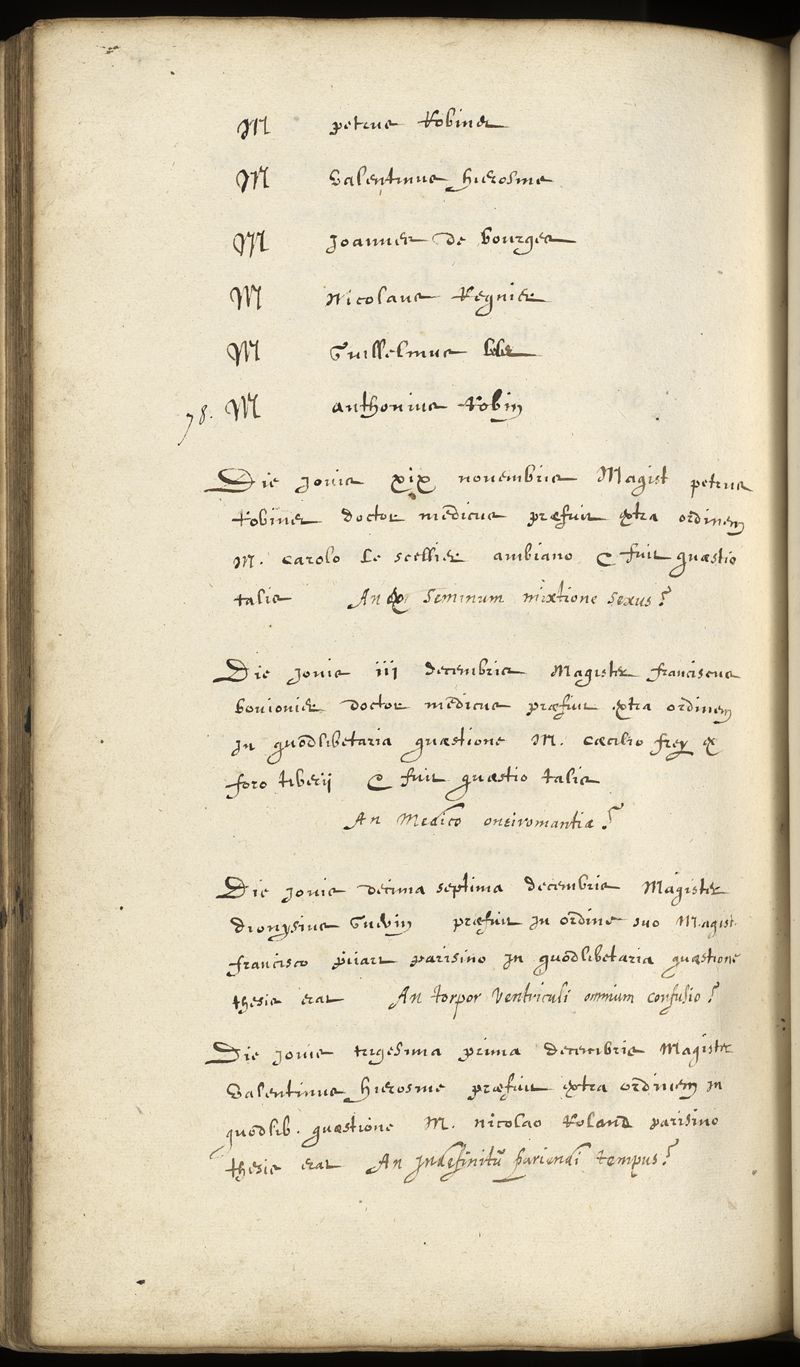 M petrus Robinet
M Valentinus Hierosme
M Joannes de bourges
M Nicolaus Regnier
M Guillelmus
78. M anthonius Robin
Die Jovis xix novembris Magist petrus
Robinet doctor medicus præfuit extra ordinem
M. carolo le scellier ambiano & fuit quæstio
talis An ex seminum mixtione sexus?
Die Jovis iii decembris Magister franciscus
bovionier doctor medicus præfuit extra ordinem
in quodlibetaria quæstione M. cæcilio frey ex
foro tiberij & fuit quæstio talis
An Medico oneiromantia?
Die Jovis decima septima decembris Magister
dionysius præfuit in ordine suo Magist.
francisco pijart parisino in quodlibetaria quæstione
thesis erat An torpor ventriculi omnium confusio?
Die Jovis trigesima prima decembris Magister
Valentinus hierosme præfuit extra ordinem in
quodlib. quæstione M. nicolao Roland parisino
thesis erat An Indefinitū pariendi tempus?